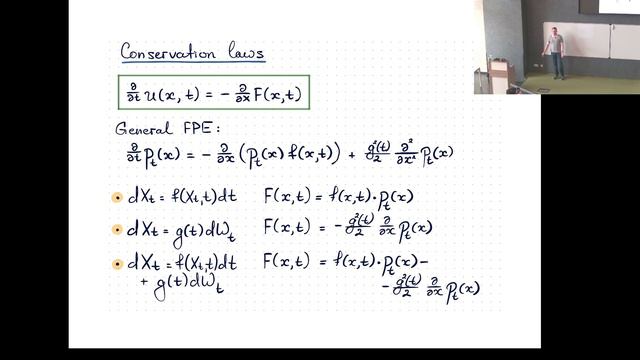 Conservation laws
∂/∂t u(x, t) = - ∂/∂x F(x,t)
General FPE:
∂/∂t p_t(x) = - ∂/∂x (p_t(x) f(x,t)) + g²(t)/2 ∂²/∂x² p_t(x)
• dX_t = f(X_t,t)dt F(x,t) = f(x,t)·p_t(x)
• dX_t = g(t)dW_t F(x,t) = - g²(t)/2 ∂/∂x p_t(x)
• dX_t = f(X_t,t)dt F(x,t) = f(x,t)·p_t(x) -
+ g(t)dW_t - g²(t)/2 ∂/∂x p_t(x)